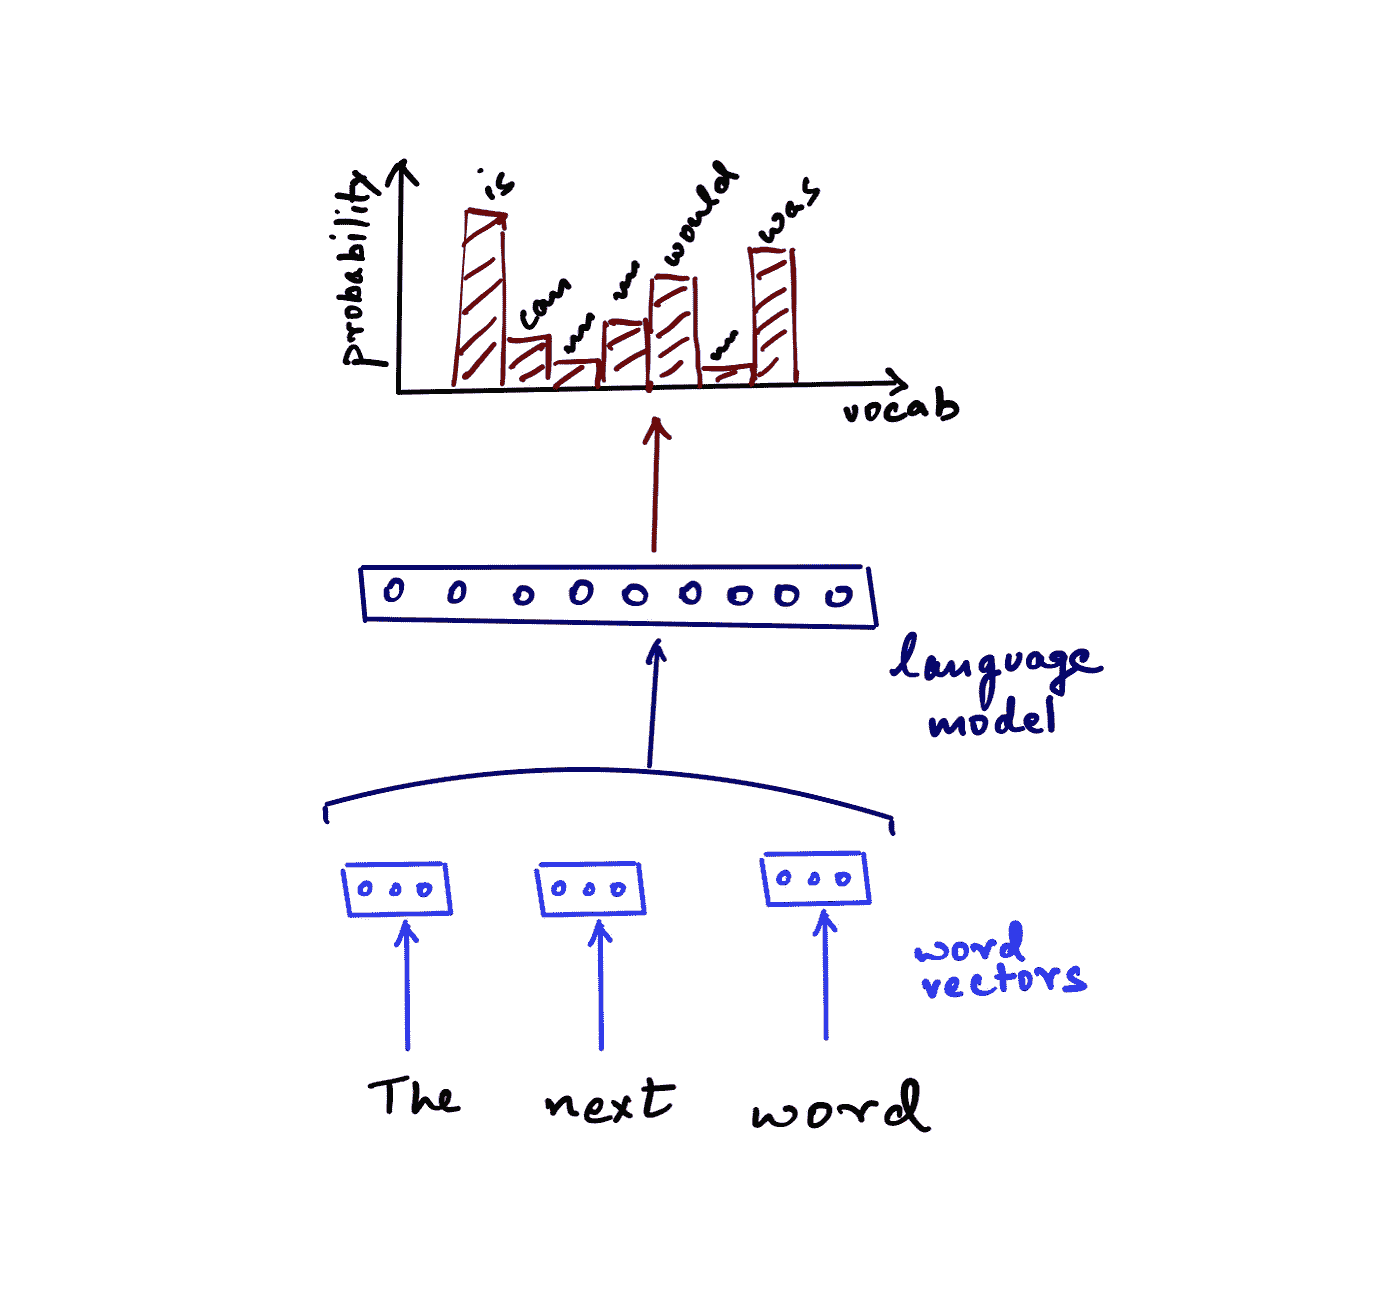 probability
is
can
would
was
vocab
language
model
word
vectors
The next word